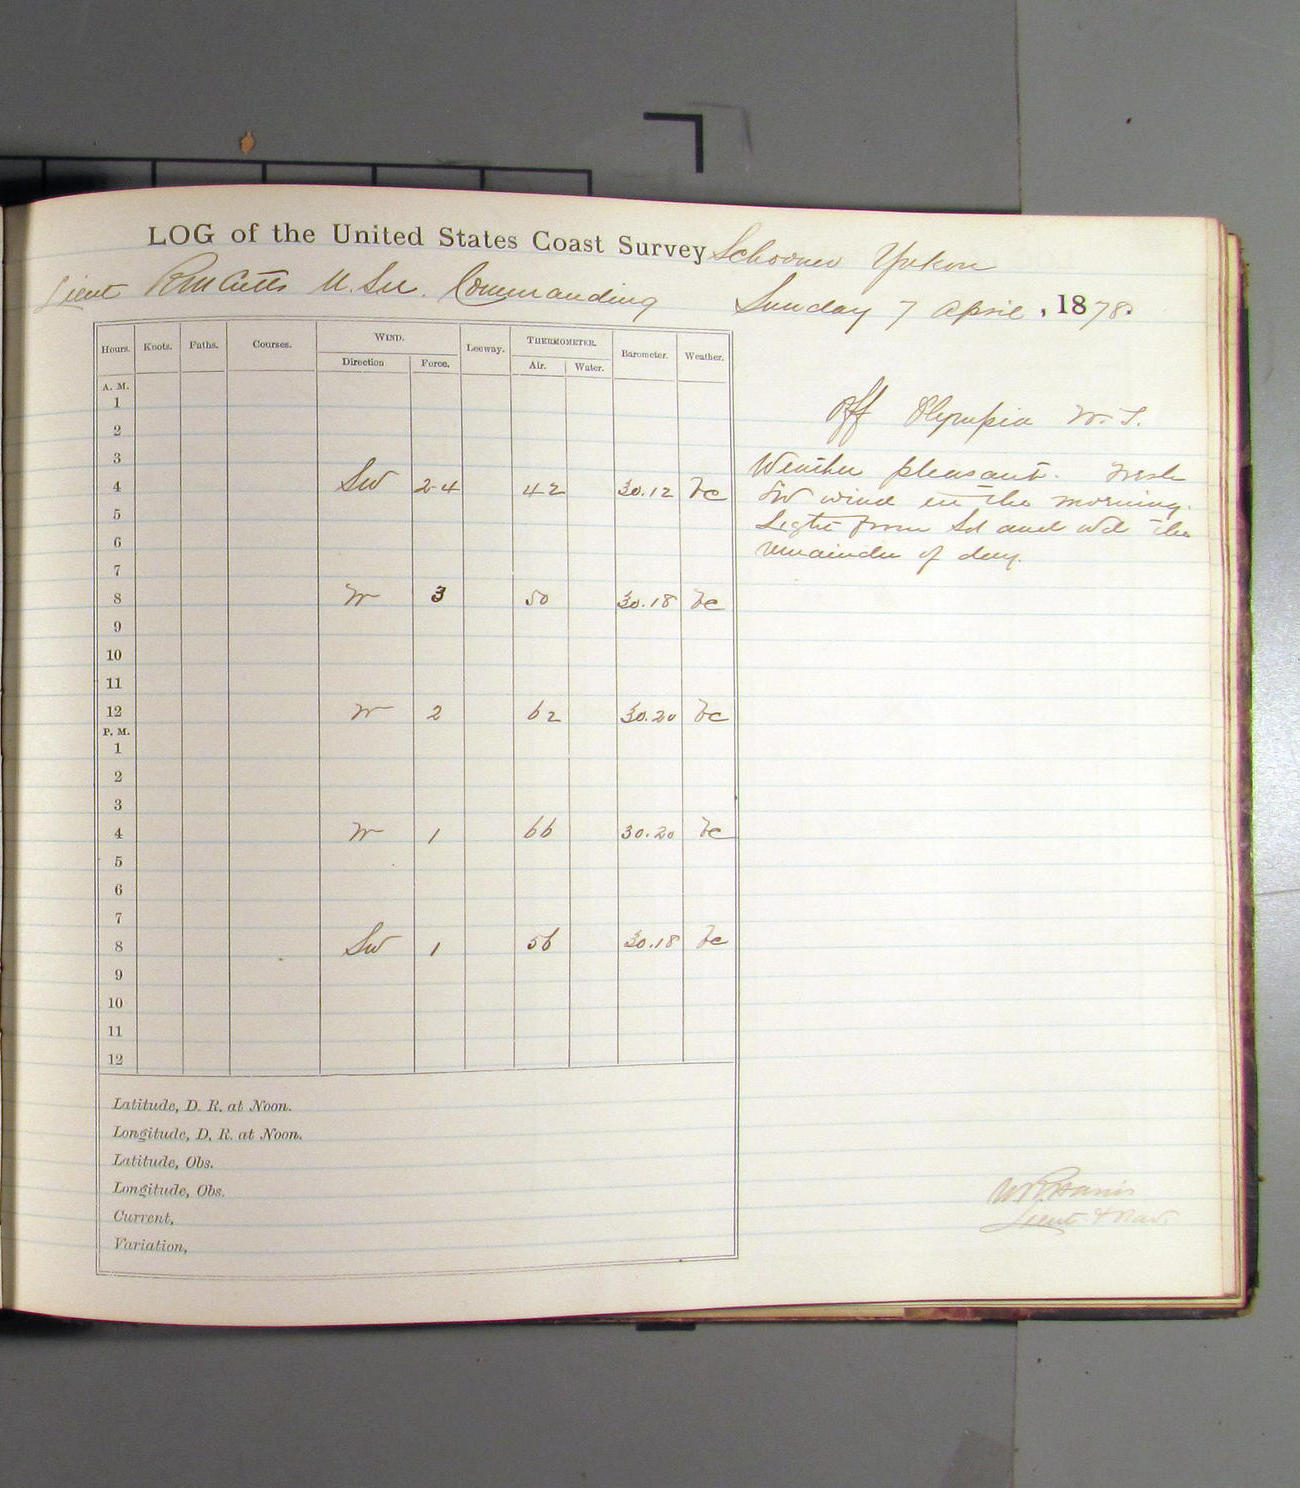 LOG of the United States Coast Survey Schooner Yukon
Lieut RM Cutts U.S.N. Commanding Sunday 7 April, 1878.
Hours. Knots. Faths. Courses. WIND. Leeway. THERMOMETER. Barometer. Weather.
Direction Force. Air. Water.
A. M.
1
2
3
4 SW 2-4 42 30.12 bc
5
6
7
8 W 3 50 30.18 bc
9
10
11
12 W 2 62 30.20 bc
P. M.
1
2
3
4 W 1 66 30.20 bc
5
6
7
8 SW 1 56 30.18 bc
9
10
11
12
Latitude, D. R. at Noon.
Longitude, D. R. at Noon.
Latitude, Obs.
Longitude, Obs.
Current,
Variation,
Off Olympia W.T.
Weather pleasant. Fresh
SW wind in the morning.
Light from Sd and Wd the
remainder of day.
Lieut & Nav.